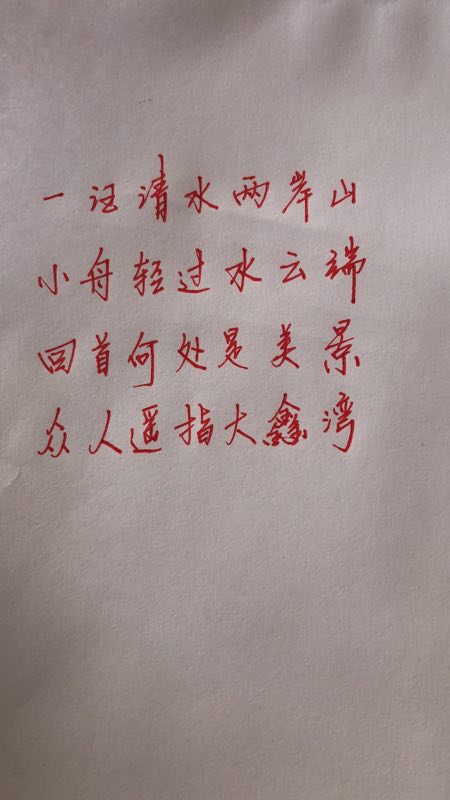 一汪清水两岸山
小舟轻过水云端
回首何处是美景
众人遥指大鑫湾